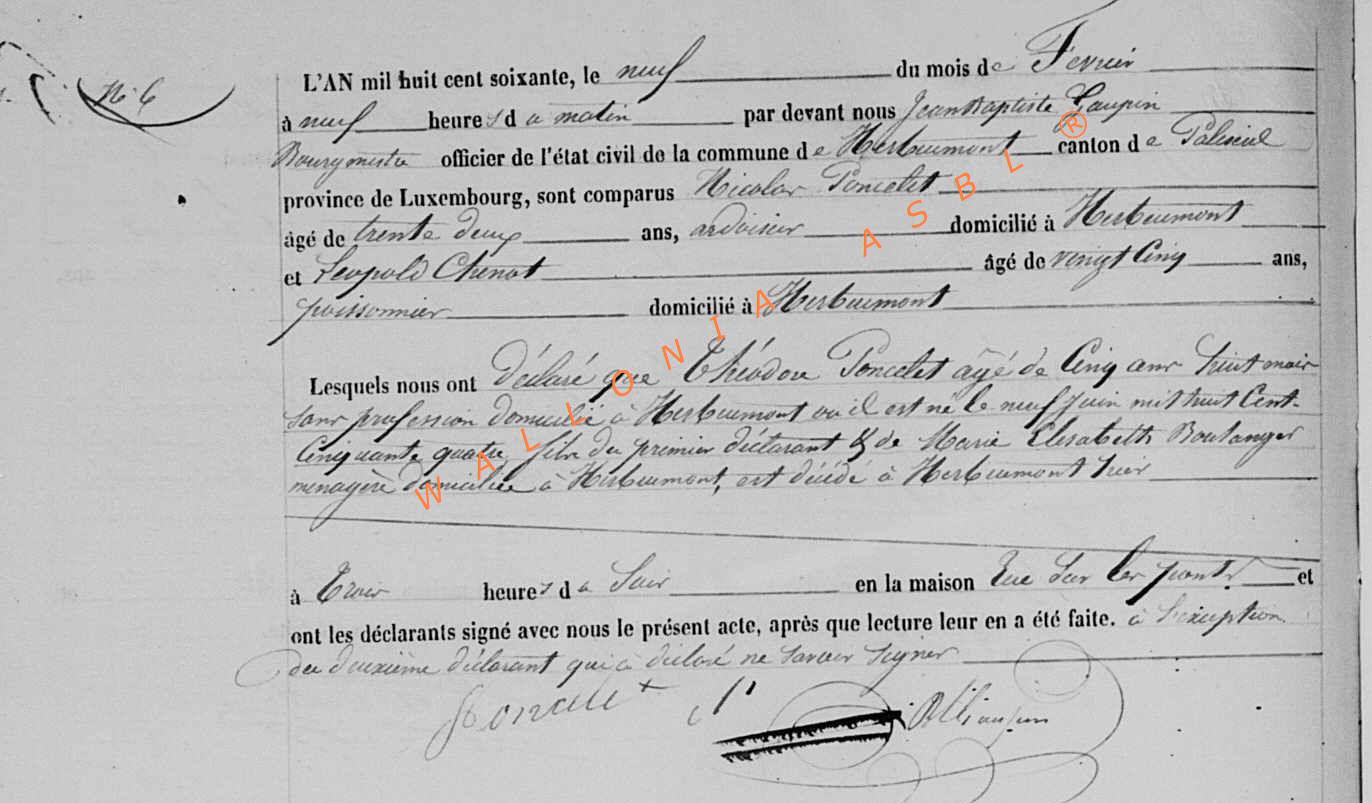 N° 6
L'AN mil huit cent soixante, le neuf du mois de Fevrier
à neuf heures du matin par devant nous Jean Baptiste Gaupin
Bourgmestre officier de l'état civil de la commune de Herbeumont canton de Paliseul
province de Luxembourg, sont comparus Nicolas Poncelet
âgé de trente deux ans, ardoisier domicilié à Herbeumont
et Léopold Chenot âgé de vingt Cinq ans,
poissonnier domicilié à Herbeumont
Lesquels nous ont déclaré que Théodore Poncelet âgé de Cinq ans huit mois
sans profession domicilié à Herbeumont où il est né le neuf juin mil huit Cent-
Cinquante quatre fils du premier déclarant & de Marie Elisabeth Boulanger
menagère domiciliée à Herbeumont, est décédé à Herbeumont hier
à Trois heures du Soir en la maison Rue Sur les ponts et
ont les déclarants signé avec nous le présent acte, après que lecture leur en a été faite. à l'exception
du deuxième déclarant qui a déclaré ne savoir signer
WALLONIA ASBL ®